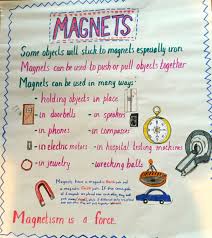 MAGNETS
Some objects will stick to magnets especially iron.
Magnets can be used to push or pull objects together
Magnets can be used in many ways:
- holding objects in place
- in doorbells - in speakers
- in phones - in compasses
- in electric motors - in hospital testing machines
- in jewelry - wrecking balls
Magnets have a magnetic
a magnetic
Magnetism is a force.